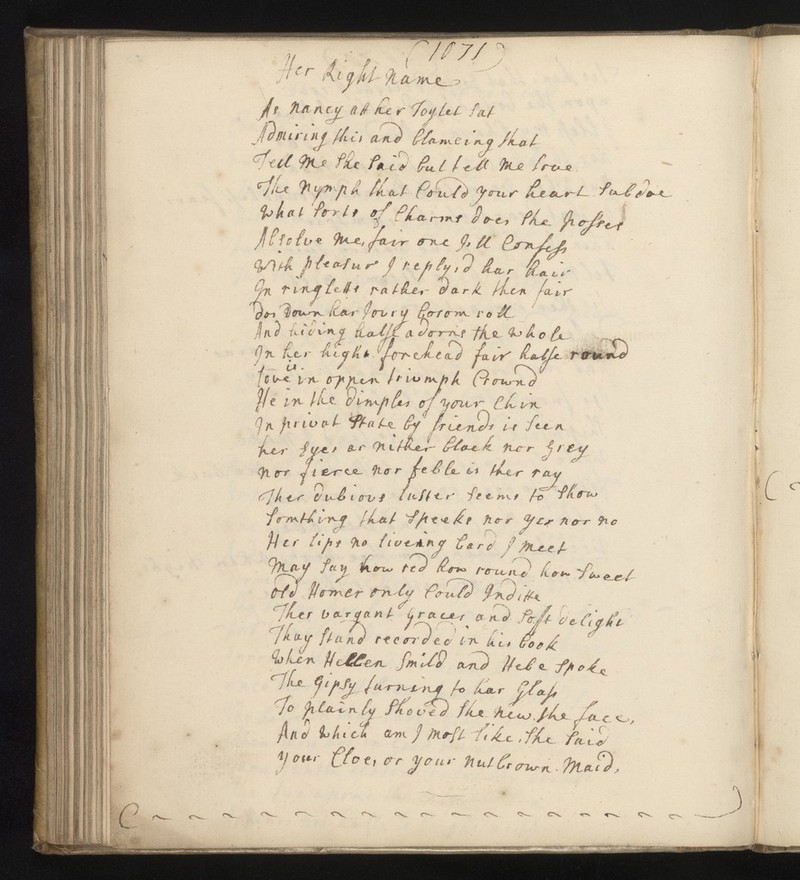 (1071)
Her Right Name
As nancy att her Toylet sat
Admiring this and blameing that
Tell me she said but tell me true
The nymph that Could your heart Subdue
what sorts of Charms does she posses
Absolve me, fair one Ill Confess
With pleasure I reply,d har hair
In ringletts rather dark then fair
dos Down har Ivory bosom roll
And hiding halfe adorns the whole
In her high forehead fair halfe round
Love is in oppen triumph Crownd
He in the dimples of your Chin
In privat State by friends is Seen
her Eyes ar nither black nor Grey
nor fierce nor feble is ther ray
Ther dubious luster Seems to Show
Somthing that Speeks nor yes nor no
Her lips no liveing bard I meet
may Say how red how round how Sweet
old Homer only Could Inditte
Ther vargant graces and Soft delight
Thay Stand recorded in his book
When Hellen Smild and Hebe Spoke
The Gipsy turning to har Glass
To plainly Shoved She knew the face,
And which am I most like, she Said
your Cloe, or your nutbrown maid,